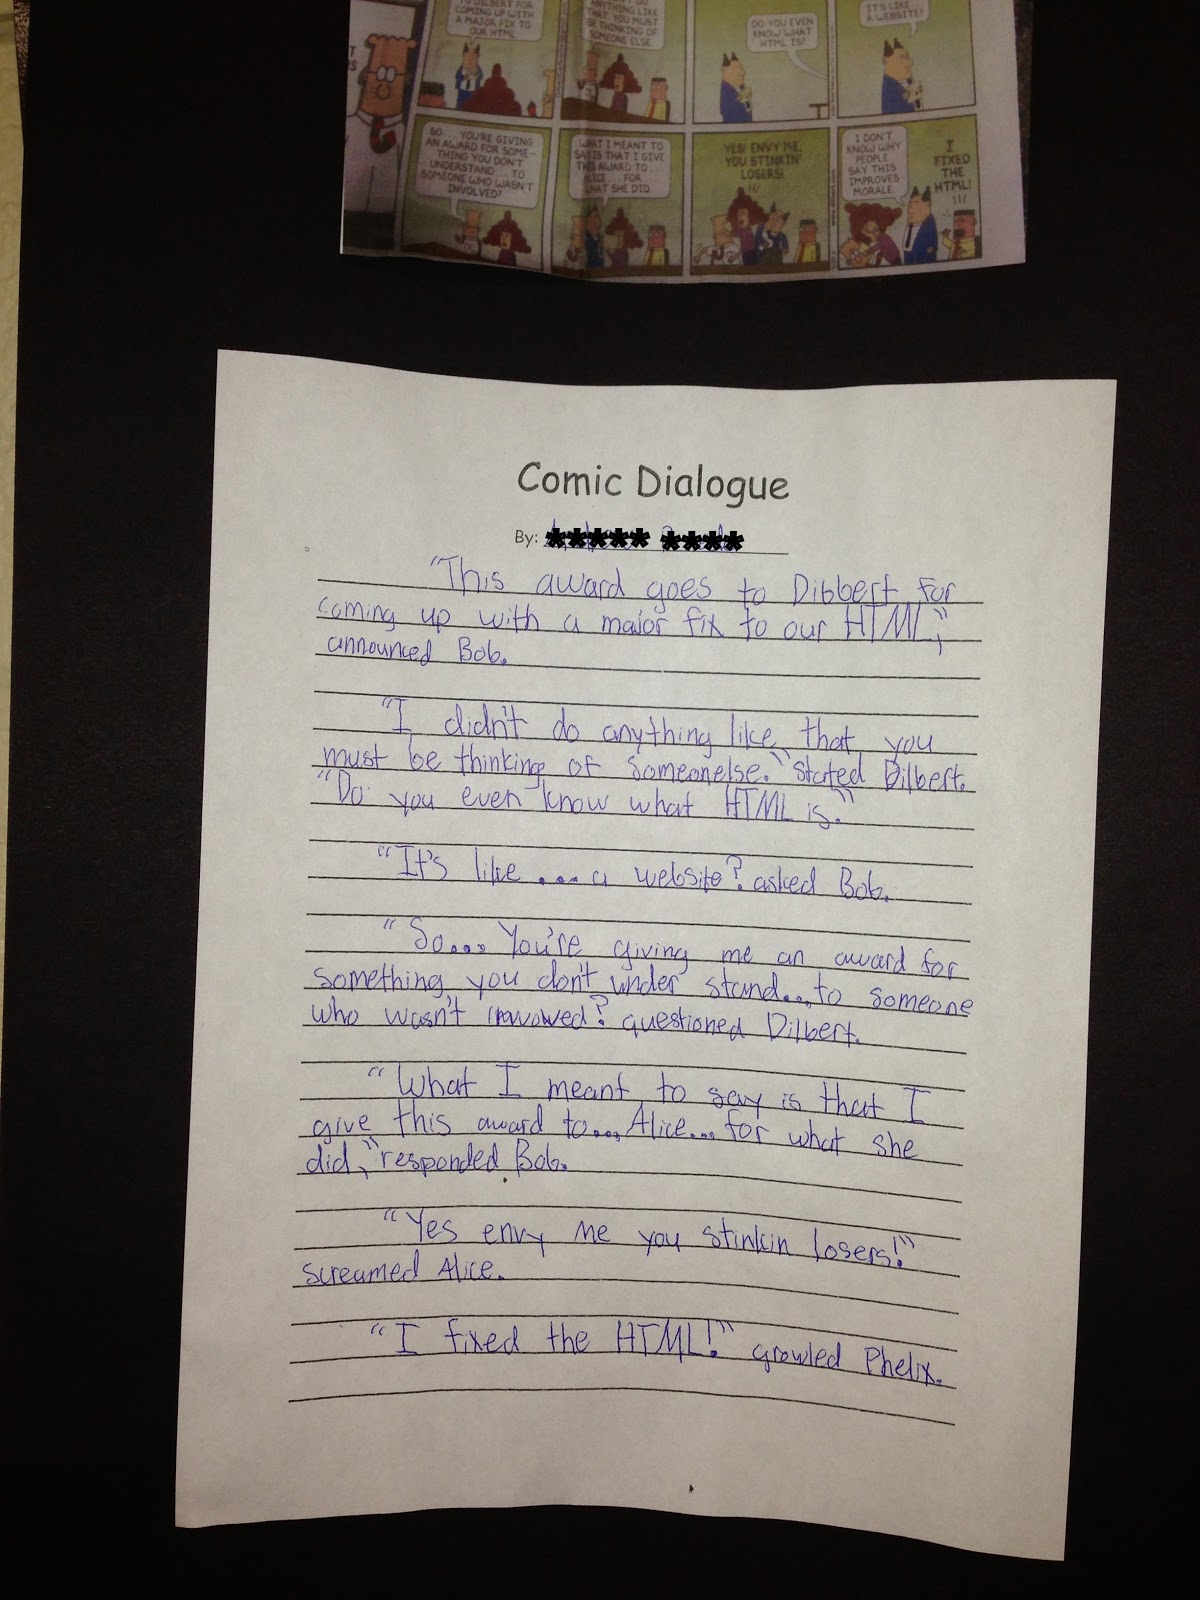 TO DILBERT FOR
COMING UP WITH
A MAJOR FIX TO
OUR HTML
ANYTHING LIKE
THAT. YOU MUST
BE THINKING OF
SOMEONE ELSE.
DO YOU EVEN
KNOW WHAT
HTML IS?
IT'S LIKE
A WEBSITE?
SO... YOU'RE GIVING
AN AWARD FOR SOME-
THING YOU DON'T
UNDERSTAND... TO
SOMEONE WHO WASN'T
INVOLVED?
WHAT I MEANT TO
SAY IS THAT I GIVE
THIS AWARD TO...
ALICE... FOR
WHAT SHE DID.
YES! ENVY ME,
YOU STINKIN'
LOSERS!
I DON'T
KNOW WHY
PEOPLE
SAY THIS
IMPROVES
MORALE.
I
FIXED
THE
HTML!
Comic Dialogue
By: ***** ****
"This award goes to Dibbert for
coming up with a major fix to our HTML,"
announced Bob.
"I didn't do anything like that you
must be thinking of someonelse." stated Dilbert.
"Do you even know what HTML is."
"It's like ....a website? asked Bob.
"So.... You're giving me an award for
something you don't under stand....to someone
who wasn't invovowed? questioned Dilbert.
"What I meant to say is that I
give this award to.... Alice... for what she
did," responded Bob.
"Yes envy me you stinkin losers!"
screamed Alice.
"I fixed the HTML!" growled Phelix.